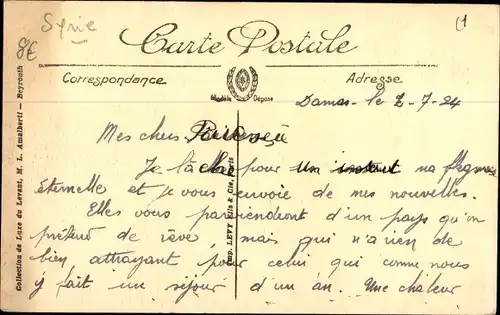 Syrie
8€
(1
Carte Postale
Correspondance
Adresse
Modèle Déposé
Damas le 2-7-24
Mes chers
Je lâche pour un instant ma flegme
éternelle et je vous envoie de mes nouvelles.
Elles vous parviendront d'un pays qu'on
prétend de rêve, mais qui n'a rien de
bien attrayant pour celui qui comme nous
y fait un séjour d'un an. Une chaleur
Collection de Luxe du Levant, M. L. Amalberti — Beyrouth
Imp. LEVY Fils & Cie, Paris